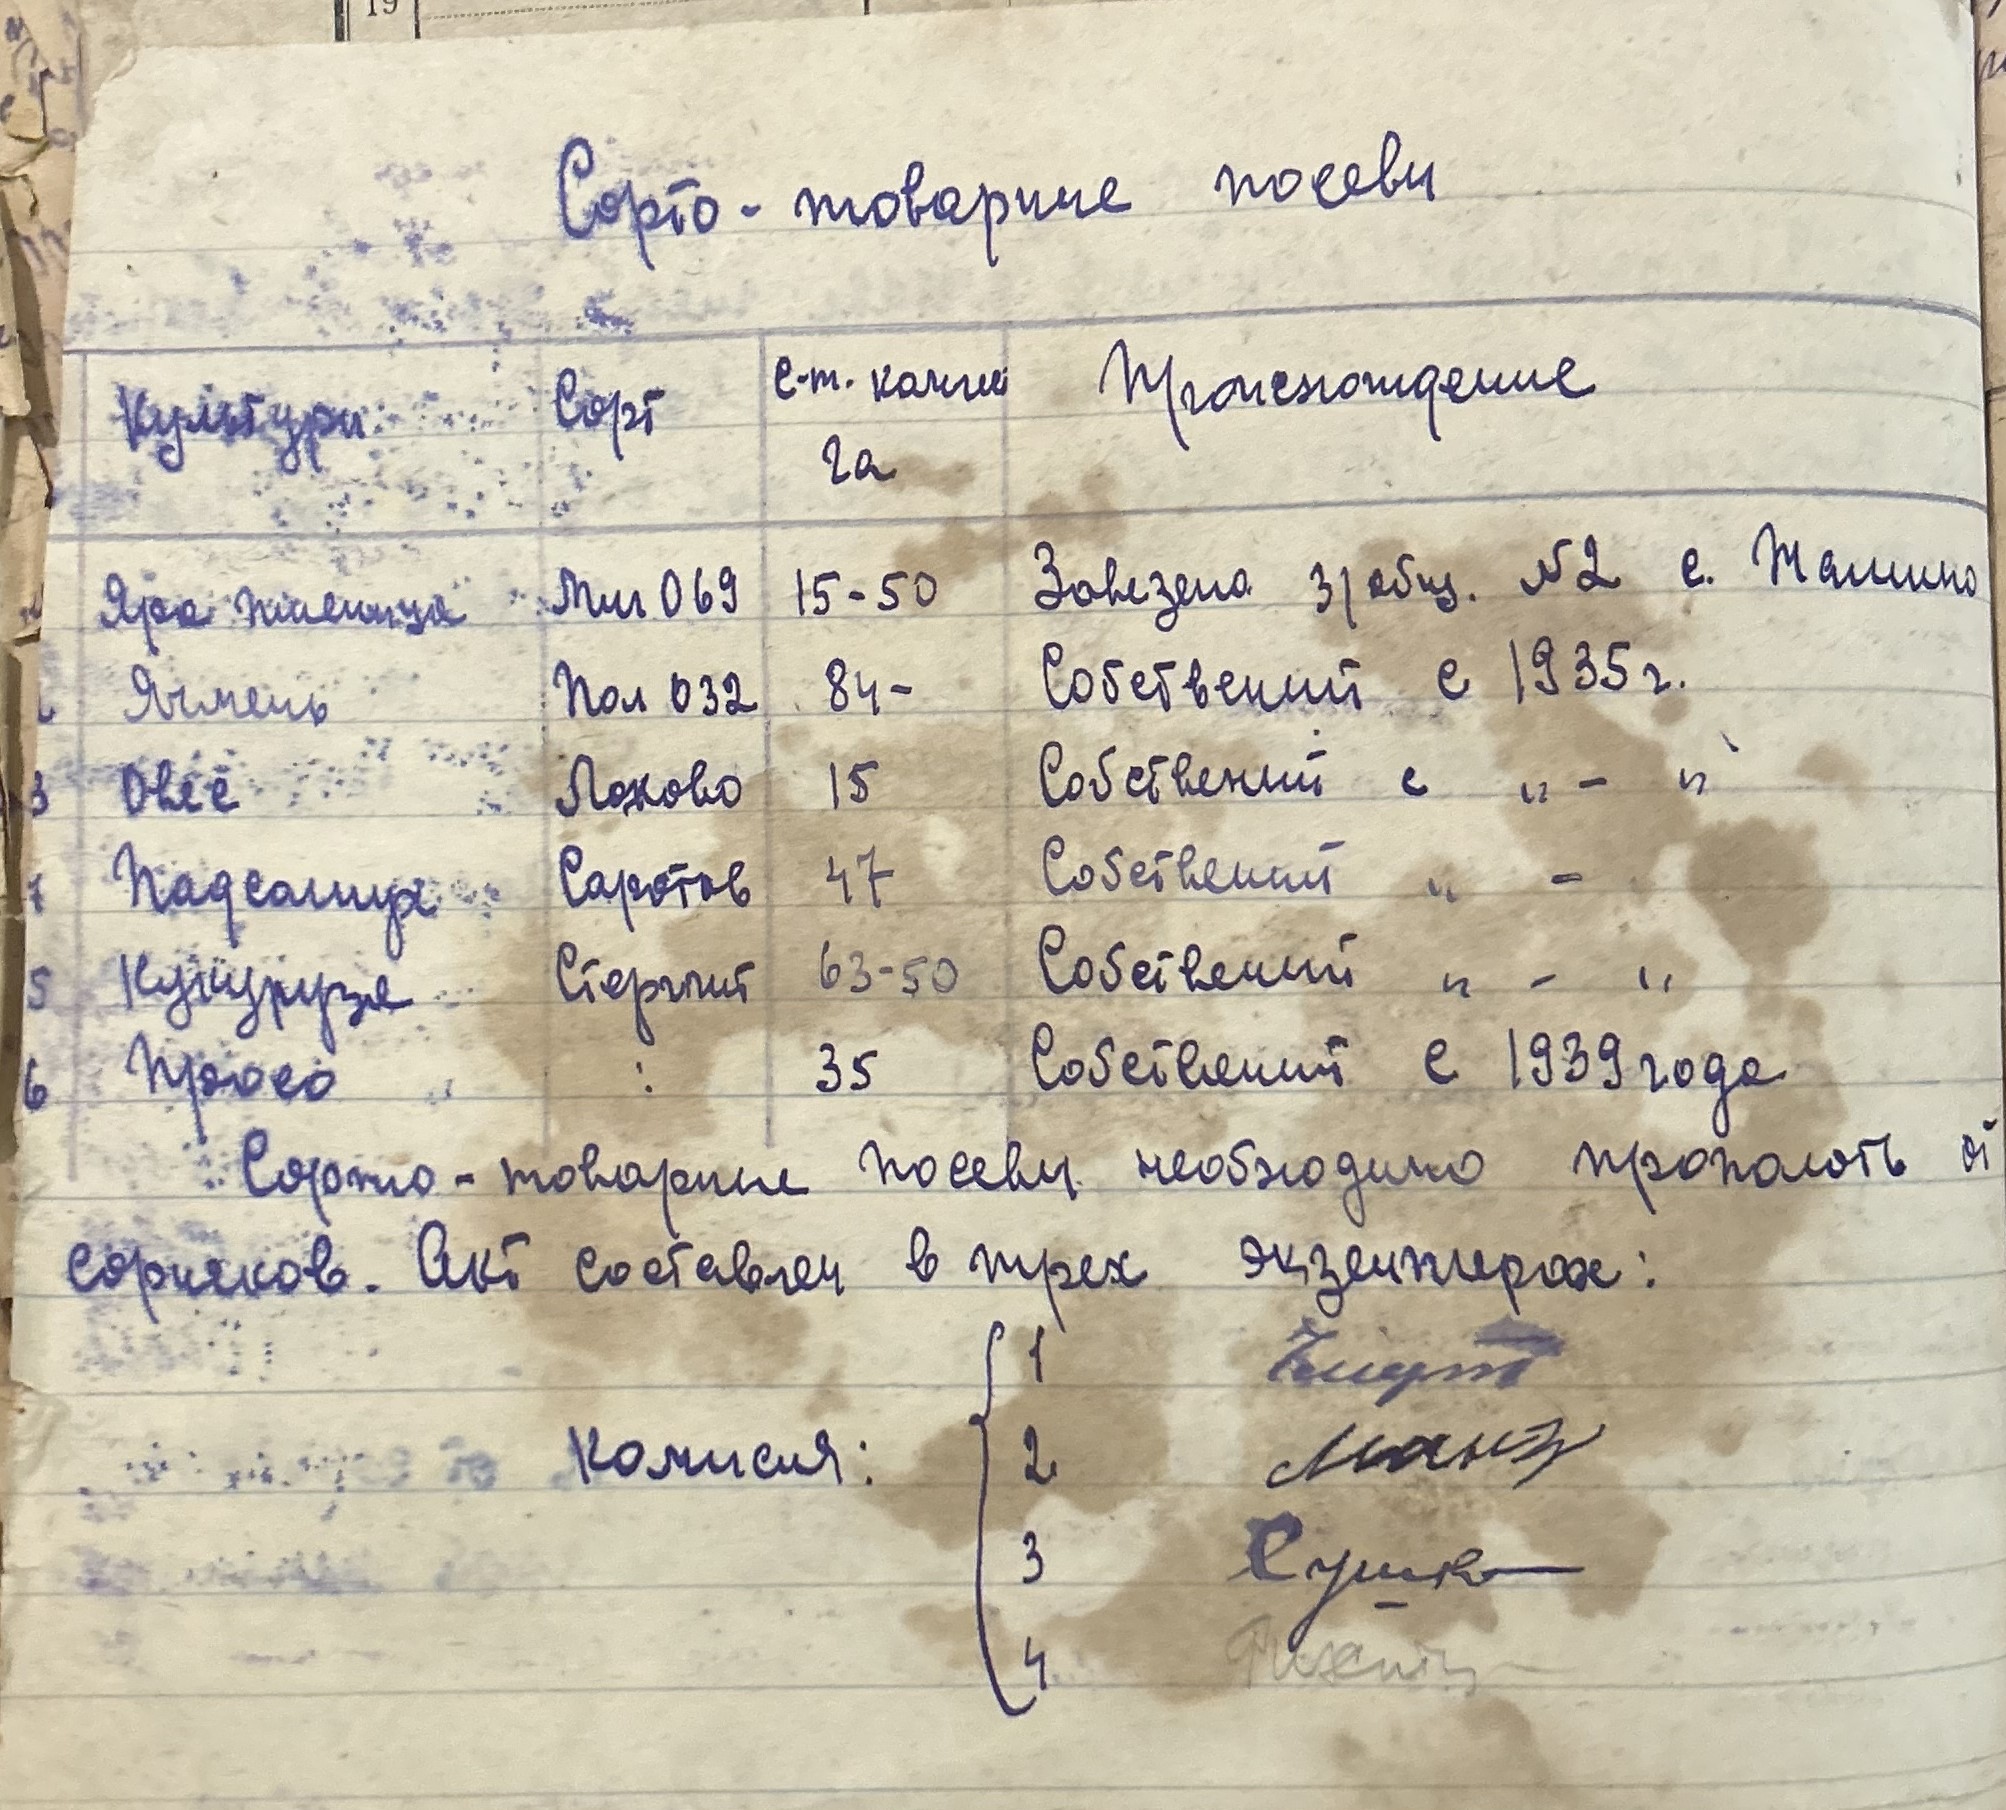 19
Сорто-товарние посеви
Культури Сорт с-т. га Происхождение
Яра пшеница Мил 069 15-50 Завезена з/общ. №2 с.
2 Ячмень Пал 032 84- Собствений с 1935 г.
3 Овес Лохово 15 Собствений с „ - "
Падсолнух Саротов 47 Собствений „ -
5 Кукуруза Стерлит 63-50 Собствений „ - "
6 Просо : 35 Собствений с 1939 года
Сорто-товарние посеви необходимо прополоть от
сорняков. Акт составлен в трех экземплярах:
1
Комисия: 2
3 Сушко
4